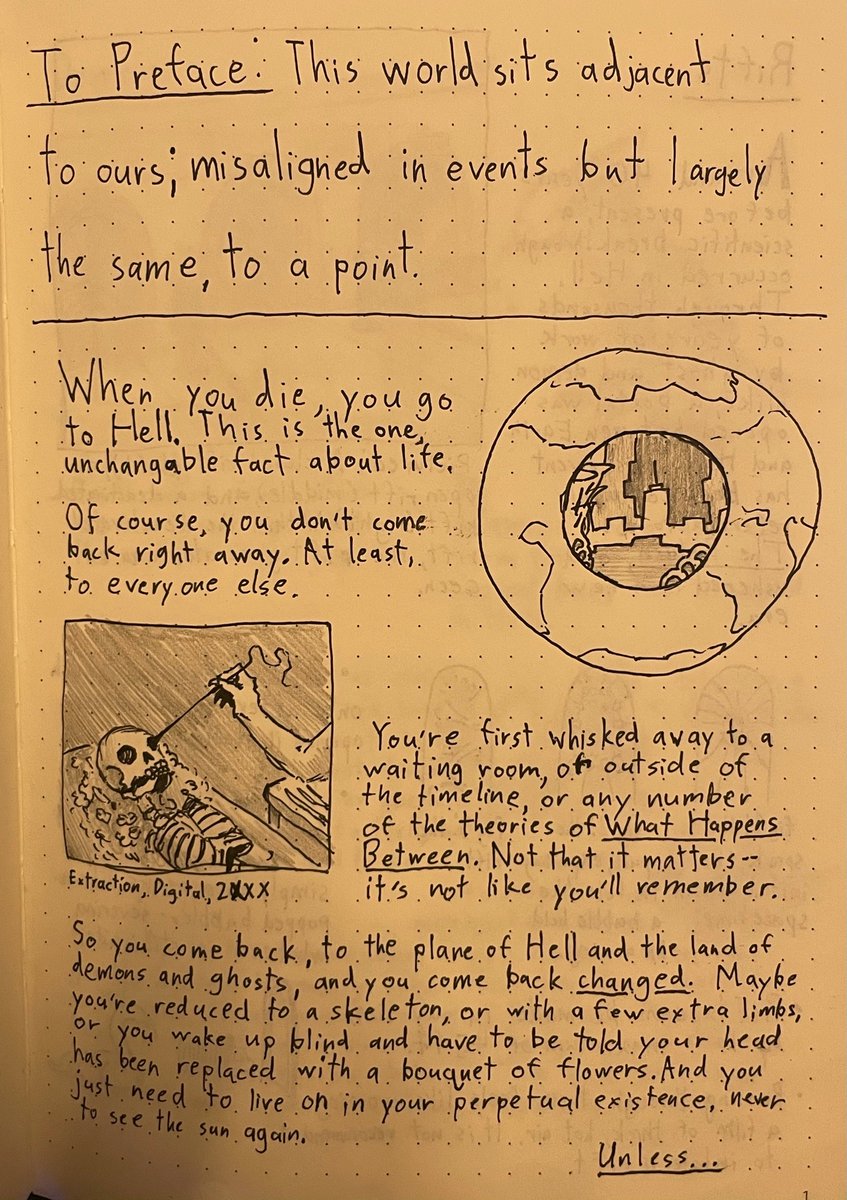 To Preface: This world sits adjacent
to ours; misaligned in events but largely
the same, to a point.
When you die, you go
to Hell. This is the one,
unchangable fact about life.
Of course, you don't come
back right away. At least,
to everyone else.
Extraction, Digital, 2XXX
You're first whisked away to a
waiting room, or outside of
the timeline, or any number
of the theories of What Happens
Between. Not that it matters--
it's not like you'll remember.
So you come back, to the plane of Hell and the land of
demons and ghosts, and you come back changed. Maybe
you're reduced to a skeleton, or with a few extra limbs,
or you wake up blind and have to be told your head
has been replaced with a bouquet of flowers. And you
just need to live on in your perpetual existence, never
to see the sun again.
Unless...
1